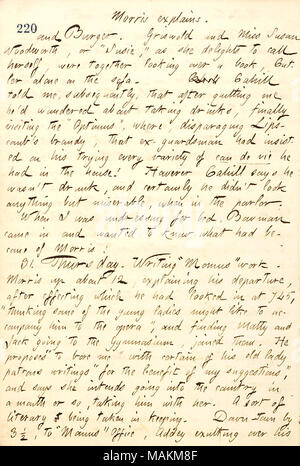 Morris explains.
220
and Burger. Griswold and Miss Susan
Woodworth, or "Susie," as she delights to call
herself, were together looking over a book, But-
ler alone on the sofa. Cahill
told me, subsequently, that after quitting me
he'd wandered about taking drinks, finally
visiting the "Optimus", where, disparaging Lips-
comb's brandy, that ex-guardsman had insist-
ed on his trying every variety of eau de vie he
had in the house! However Cahill says he
wasn't drunk, and certainly he didn't look
anything but miserable, when in the parlor.
When I was undressing for bed, Bowman
came in and wanted to know what had be-
come of Morris!
31. Thursday. Writing "Momus" work
Morris up about 12, explaining his departure,
after effecting which he had looked in at 745,
"thinking some of the young ladies might like to ac-
company him to the opera", and finding Matty and
Jack going to the Gymnasium, joined them. He
proposes "to bore me" with certain of his old lady
patrons writings "for the benefit of my suggestions"
and says she intends going into the country in
a month or so, taking him with her. A sort of
literary being taken in keeping. Down-town by
3 1/2, to "Momus" Office, Addey exulting over his
alamy
Image ID: MAKM8F
www.alamy.com